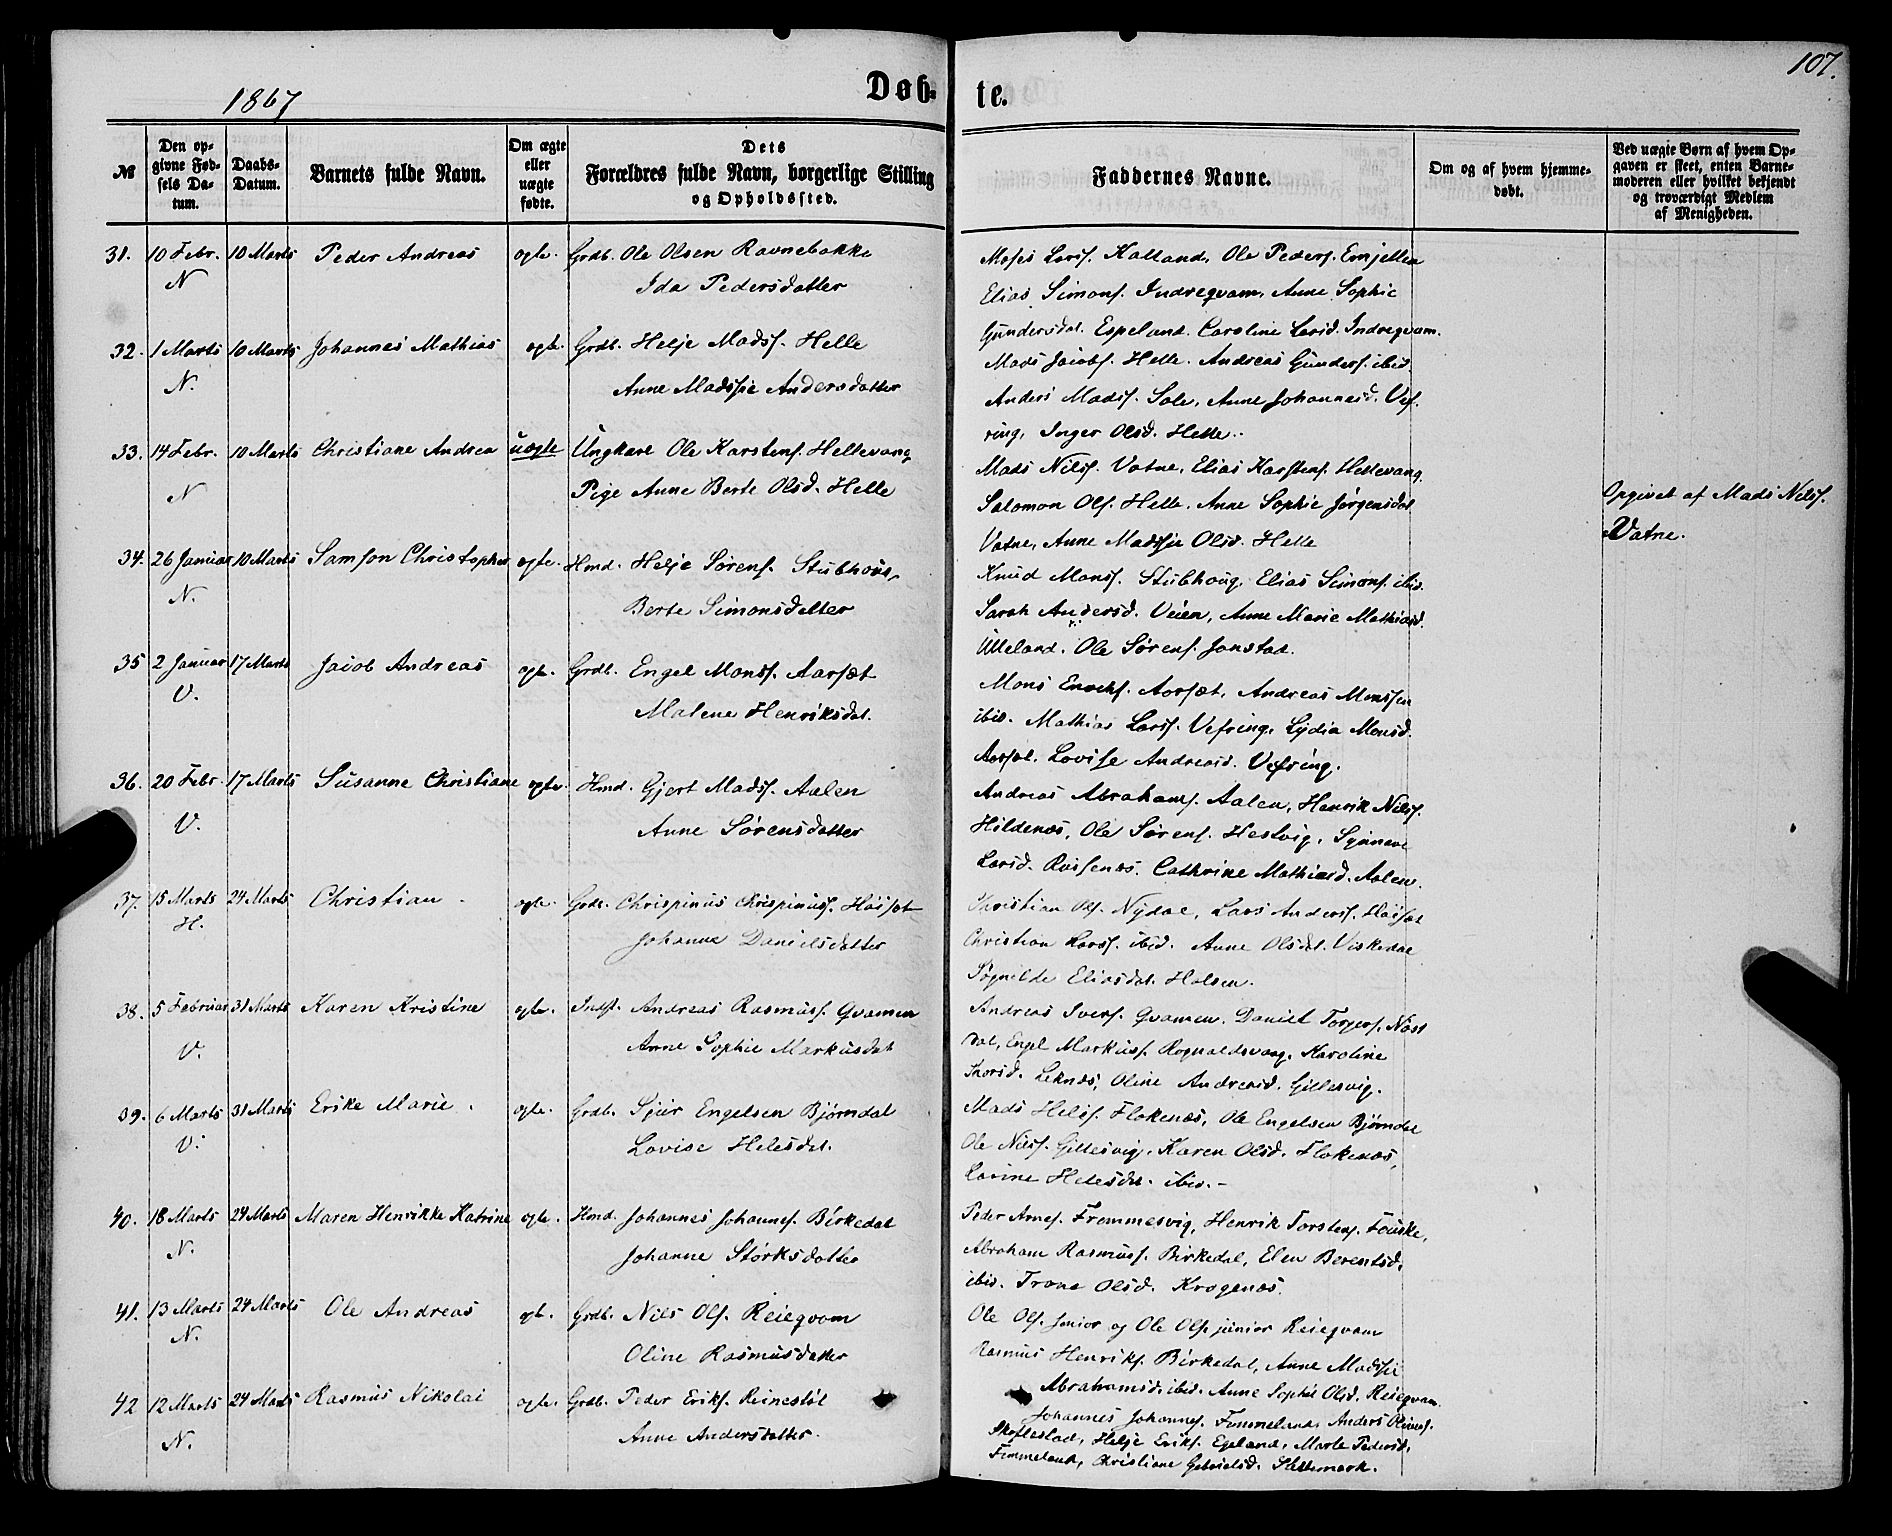 107.
1867
Døb-
te.
№
Den op-
givne Fød-
sels Da-
tum.
Daabs-
Datum.
Barnets fulde Navn.
Om ægte
eller
uægte
fødte.
Dets
Forældres fulde Navn, borgerlige Stilling
og Opholdssted.
Faddernes Navne.
Om og af hvem hjemme-
døbt.
Ved uægte Børn af hvem Op-
gaven er skeet, enten Barne-
moderen eller hvilket bekjendt
og troværdigt Medlem
af Menigheden.
31. 10 Febr. 10 Marts Peder Andreas ægte. Grdb. Ole Olsen Ravnebakke
N Ida Pedersdatter
Moses Larss. Kalland, Ole Peders.
Elias Simons. Indreqvam, Anne Sophie
Gundersdat. Espeland. Caroline Larsd. Indreqvam.
32. 1 Marts 10 Marts Johannes Mathias ægte. Grdb. Helje Madss. Helle
N. Anne Madssie Andersdatter
Mads Jacobs. Helle. Andreas Gunders. ibid.
Anders Madss. Sole, Anne Johannesd. Vef-
ring, Inger Olsd. Helle.
33. 14 Febr. 10 Marts Christiane Andrea uægte Ungkarl Ole Karstens. Hellevang
N Pige Anne Berte Olsd. Helle
Mads Nilss. Vatne, Elias Karstens. Hellevang,
Salomon Ols. Helle. Anne Sophie Jørgensdat.
Vatne, Anne Madssie Olsd. Helle
Opgivet af Mads Nilss.
Vatne.
34. 26 Januar 10 Marts Samson Christopher ægte. Hmd. Helje Sørens. Stubhoug,
N. Berte Simonsdatter
Knud Monss. Stubhoug, Elias Simons. ibid.
Sarah Andersd. Veien, Anne Marie Mathiasd.
Ulleland. Ole Sørens. Jonstad.
35 2 Januar 17 Marts Jacob Andreas ægte. Grdb. Engel Monss. Aarsæt
V. Malene Henriksdat.
Mons Enochs. Aarsæt, Andreas Monssen
ibid. Mathias Larss. Vefring, Lydia Monsd.
Aarsæt. Lovise Andreasd. Vefring.
36. 20 Febr. 17 Marts Susanne Christiane ægte. Hmd. Gjert Madss. Aalen
V. Anne Sørensdatter
Andreas Abrahams. Aalen, Henrik Nilss.
Hildenæs, Ole Sørens. Hestvig, Synneve
Larsd. Cathrine Mathiasd. Aalen.
37. 15 Marts 24 Marts Christian ægte. Grdb. Chrispinus Chrispinuss. Høisæt
H. Johanne Danielsdatter
Christian Ols. Nydal, Lars Anderss. Høisæt
Christian Larss. ibid. Anne Olsdat. Viskedal
Eliasdat. Halsen.
38. 5 Februar 31 Marts Karen Kristine ægte. Indst. Andreas Rasmuss. Qvamen
V. Anne Sophie Markusdat
Andreas Ivers. Qvamen. Daniel Torgers. Nøst
dal, Engel Markuss. Rognaldsvaag, Karoline
Leknæs, Oline Andreasd. Gillesvig.
39. 6 Marts 31 Marts Erike Marie. ægte. Grdb. Sjur Engelsen Bjørndal
V. Lovise Helesdat.
Mads Heless. Flokenæs, Ole Engelsen Bjørndal
Ole Nilss. Gillesvig. Karen Olsd. Flokenæs,
Lavine Helesdat. ibid. -
40. 18 Marts 24 Marts Maren Henrikke Katrine ægte. Hmd. Johannes Johannes. Birkedal
N. Johanne Størksdatter
Peder Arnes. Frammesvig, Henrik Torstens. Fauske,
Abraham Rasmuss. Birkedal, Elen Berentsd.
ibid. Trone Olsd. Krogenæs.
41. 13 Marts 24 Marts Ole Andreas ægte. Grdb. Nils Ols. Reieqvam
N. Oline Rasmusdatter
Ole Ols. senior og Ole Ols. junior Reieqvam
Rasmus Henriks. Birkedal, Anne Madssie
Abrahamsd. ibid. Anne Sophie Olsd. Reieqvam.
42 12 Marts 24 Marts Rasmus Nikolai ægte. Grdb. Peder Eriks. Reinestøl
N. Anne Andersdatter.
Johannes Johannes. Fimmeland, Anders Olivers.
Skaflestad, Helje Eriks. Egeland, Marte Pedersd.
Fimmeland, Christiane Gabrielsd. Slettemark.